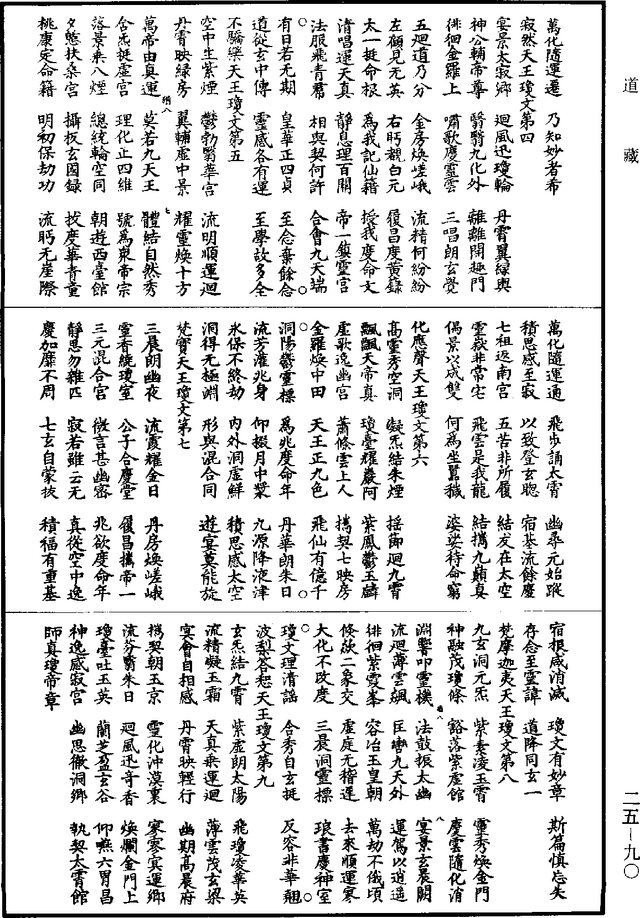 道藏
萬化隨運遷　乃知妙者希
寂然天王瓊文第四
宴景太寂鄉　迴風迅瓊輪　丹霄翼綠輿
神公輔帝尊　翳翳九化外　雝雝閒趣門
徘徊金羅上　嘯歌慶靈雲　三唱朗玄覺
五迴道乃分　金房煥嵯峨　流精何紛紛
左顧見无英　右眄覩白元　履昌度黃錄
太一挺命根　為我記仙籍　授我度命文
清唱運天真　靜息理百關　帝一鎮靈宮
法服飛青帬　相與契何許　合會九天瑞
有日若无期　皇華正四貞　至念棄餘念
道從玄中傳　靈感各有運　至學故多全
不驕樂天王瓊文第五
空中生紫煙　鬱勃繁華宮　流明順運迴
丹霄映綠房　翼輔虛中景　耀靈煥十方
萬帝由真運　莫若九天王　體結自然秀
含炁挺虛宮　理化正四維　號為衆帝宗
落景乘八煙　總統輪空同　朝遊西臺館
夕憩扶桒宮　攝板玄圖録　按度華青童
桃康定命籍　明初保劫功　流眄无崖際
萬化隨運通　飛步誦太霄　幽尋元始蹤
積思感至寂　以致登玄聰　宿基流餘慶
七祖返南宮　五苦非所履　結友在太空
靈嶽非常宅　飛雲是我龍　結攜九顛真
偶景以成雙　何為坐囂穢　婆娑待命窮
化應聲天王瓊文第六
高靈秀空洞　凝炁結朱煙　揺御迴九霄
飄飄天帝真　瓊臺耀巖阿　紫鳳鬱玉麟
虛歌逸幽宮　蕭條雲上人　攜契七映房
金羅煥中田　天王正九色　飛仙有億千
洞陽鬱靈標　為兆度命年　丹華朗朱日
流芳灌兆身　仰掇月中漿　九源降液津
永保不終劫　內外洞虛鮮　積思感太空
洞得无極淵　形與混合同　遊宴莫能旋
梵寶天王瓊文第七
三晨朗幽夜　流霞耀金日　丹房煥嵯峨
靈香繞瓊室　公子合慶堂　履昌攜帝一
三元混合宮　微言甚幽密　兆欲度命年
靜思勿雜匹　寂若雖云无　真從空中逸
慶加靡不周　七玄自蒙拔　積福有重基
宿根咸消滅　瓊文有妙章　斯篇慎忘失
存念至靈諱　道降同玄一
梵摩迦夷天王瓊文第八
九玄洞元炁　紫素淩玉霄　靈秀煥金門
种融茂瓊條　豁落紫虛館　慶雲隨化消
淵響叩靈機　法鼓振太幽　宴景玄晨闕
流迴薄雲飆　匡轡九天外　運駕以逍遥
徘徊紫霞峯　容冶玉皇朝　萬劫不俄頃
倏欻二象交　虛庭无稽遲　去來順運寥
大化不改度　三晨洞靈標　琅書慶神室
瓊文理清謡　含秀自玄挺　反容非華翹
波梨荅恕天王瓊文第九
玄炁結九霄　紫虛朗太陽　飛瓊淩華英
流精凝玉霜　天真乘運迴　薄雲茂玄梁
宴會自相感　丹霄映輕行　幽期高晨府
攜契朝玉京　靈化沖漠裏　寥寥冥運鄉
流芬翳朱日　迴風迅奇香　煥爛金門上
瓊臺吐玉英　蘭芝盈玄谷　仰嚥六胃昌
神逸感寂宮　幽思徹洞鄉　執契太霄館
師真瓊帝章
二五—九〇